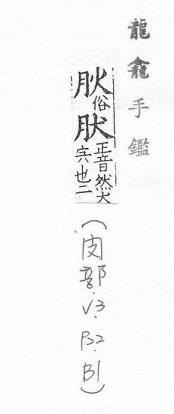 龍龕手鑑
俗肰正音然犬
宍也二
(肉部.V3.P32.B1)